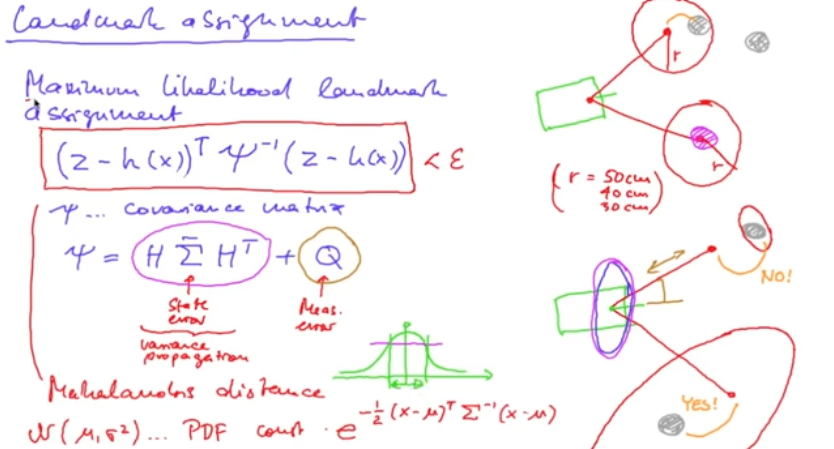 Landmark assignment
Maximum likelihood landmark
assignment
(z - h(x))ᵀ Ψ⁻¹ (z - h(x)) < ε
Ψ... covariance matrix
Ψ = H Σ̄ Hᵀ + Q
State
error
Meas.
error
variance
propagation
Mahalanobis distance
N(μ,σ²)... PDF const · e^{-½ (x-μ)ᵀ Σ⁻¹ (x-μ)}
r
r
(r = 50cm
40 cm
30 cm)
NO!
Yes!